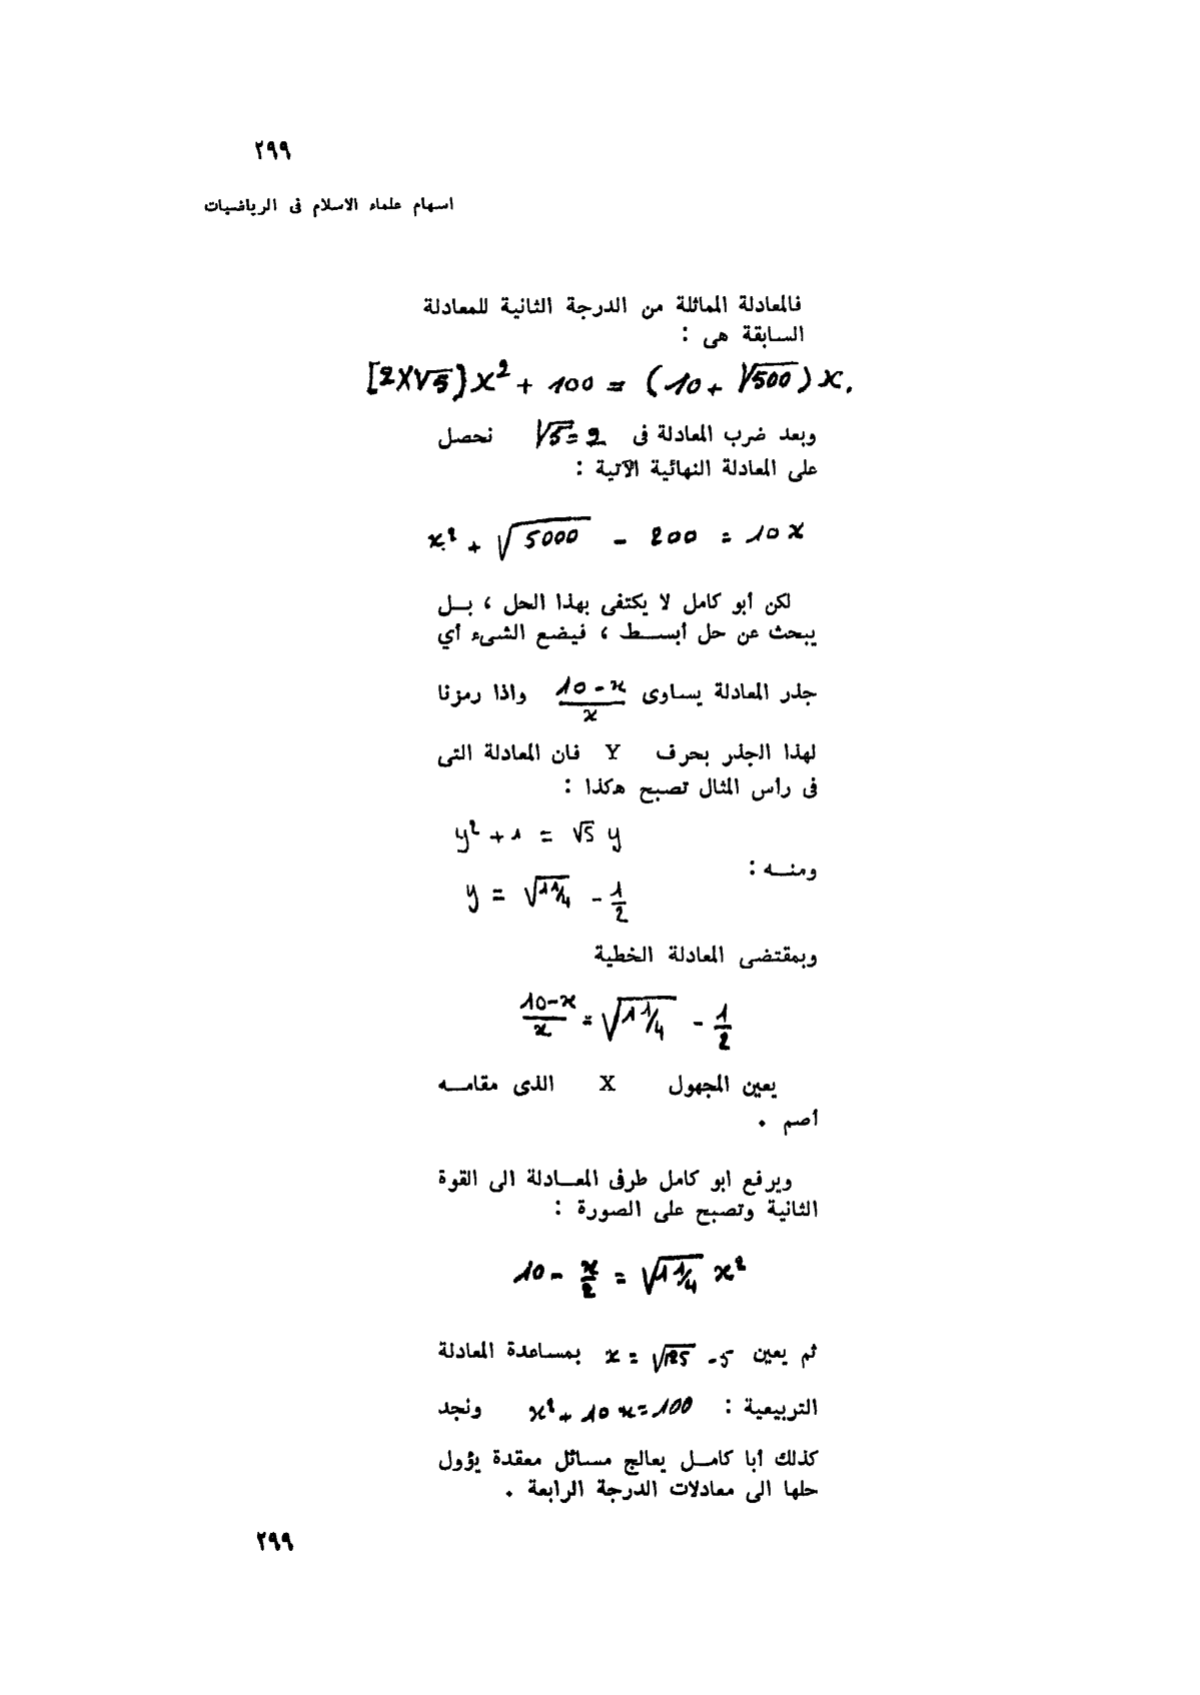 ٢٩٩
اسهام علماء الاسلام فى الرياضيات
فالمعادلة الماثلة من الدرجة الثانية للمعادلة
السابقة هى :
[2X√5]x² + 100 = (10 + √500)x.
وبعد ضرب المعادلة فى √5=2 نحصل
على المعادلة النهائية الآتية :
x² + √5000 - 200 = 10x
لكن أبو كامل لا يكتفى بهذا الحل ، بل
يبحث عن حل أبسط ، فيضع الشىء أي
جذر المعادلة يساوى (10-x)/x واذا رمزنا
لهذا الجذر بحرف Y فان المعادلة التى
فى رأس المثال تصبح هكذا :
y² + 1 = √5 y
ومنه :
y = √(1 1/4) - 1/2
وبمقتضى المعادلة الخطية
(10-x)/x = √(1 1/4) - 1/2
يعين المجهول X الذى مقامه
أصم .
ويرفع ابو كامل طرفى المعادلة الى القوة
الثانية وتصبح على الصورة :
10 - x/2 = √(1 1/4) x²
ثم يعين x = √125 - 5 بمساعدة المعادلة
التربيعية : x² + 10x = 100 ونجد
كذلك أبا كامل يعالج مسائل معقدة يؤول
حلها الى معادلات الدرجة الرابعة .
٢٩٩